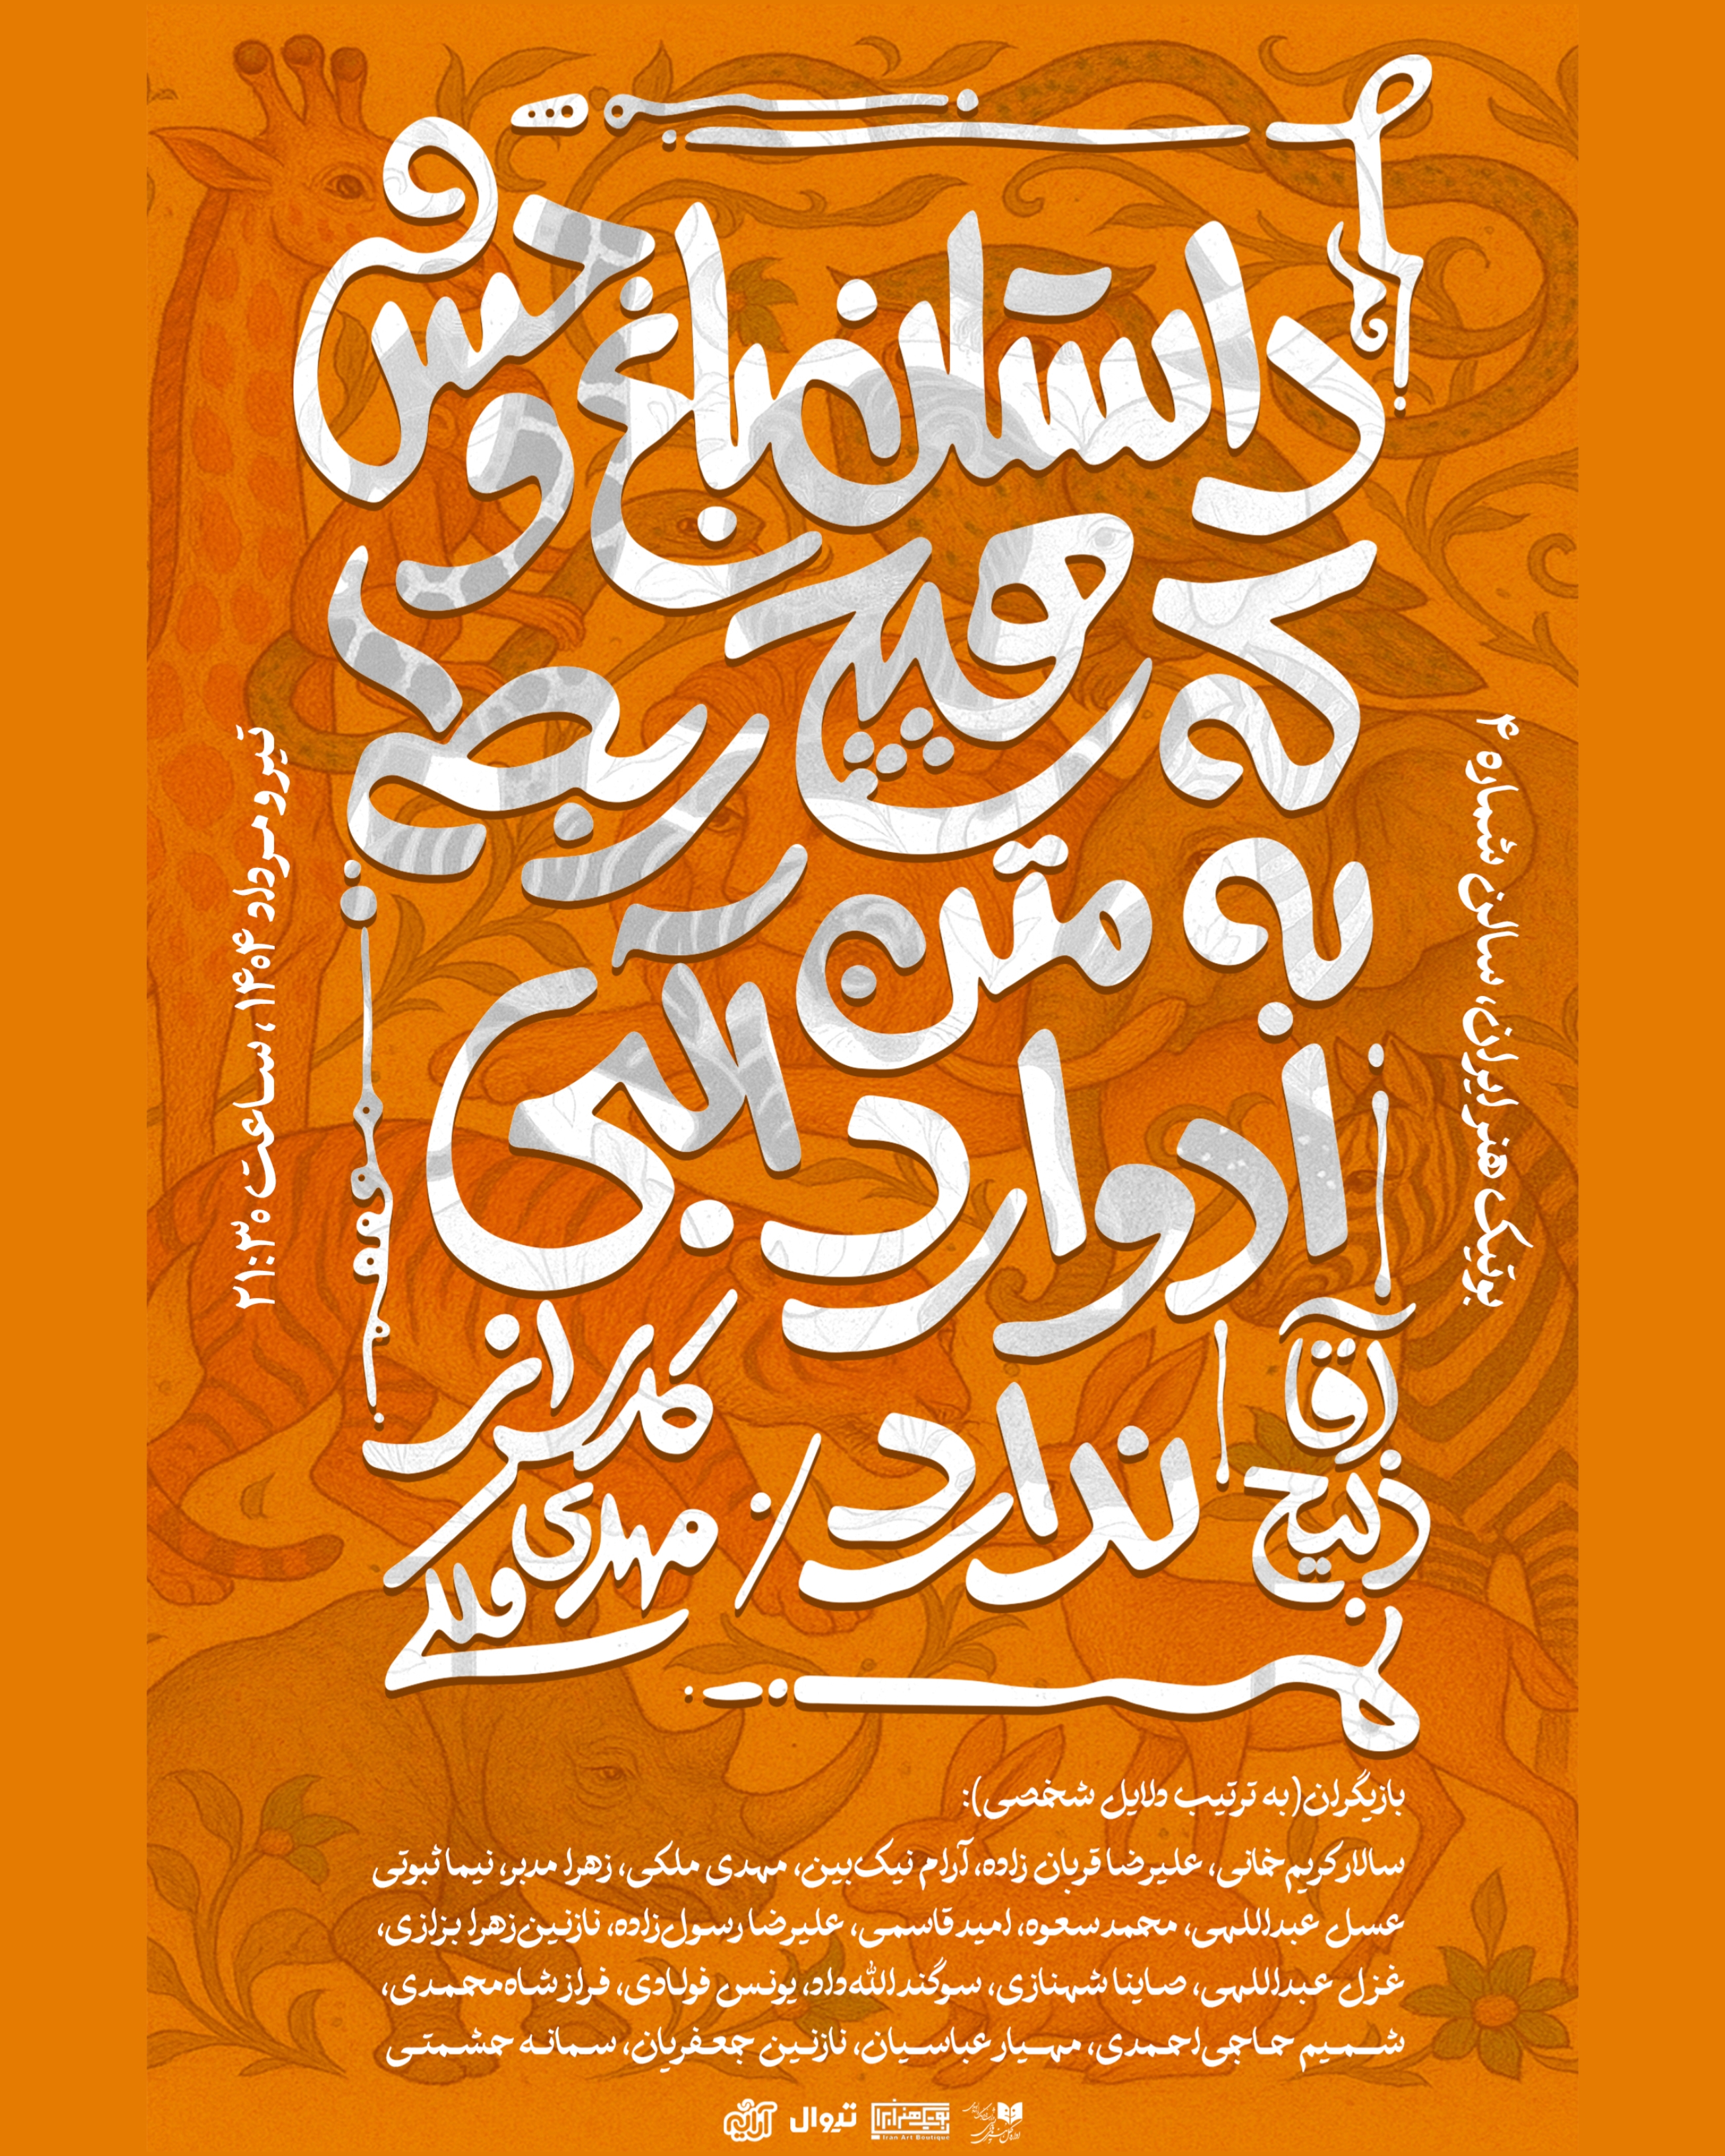 داستان باغ وحش
که هیچ ربطی
به متن آلبی
ادوارد
ندارد /
آقا
ذبیح
کاری از
مهدی ملکی
تیر و مرداد ۱۴۰۴، ساعت ۲۱:۳۰
بوتیک هنر ایران، سالن شماره ۴
بازیگران (به ترتیب دلایل شخصی):
سالار کریم‌خانی، علیرضا قربان زاده، آرام نیک‌بین، مهدی ملکی، زهرا مدبر، نیما ثبوتی
عسل عبداللهی، محمد سعوه، امید قاسمی، علیرضا رسول‌زاده، نازنین‌زهرا بزازی،
غزل عبداللهی، صاینا شهنازی، سوگند الله‌داد، یونس فولادی، فراز شاه‌محمدی،
شمیم حاجی‌احمدی، مهیار عباسیان، نازنین جعفریان، سمانه حشمتی
بوتیک هنر ایران
Iran Art Boutique
تیوال